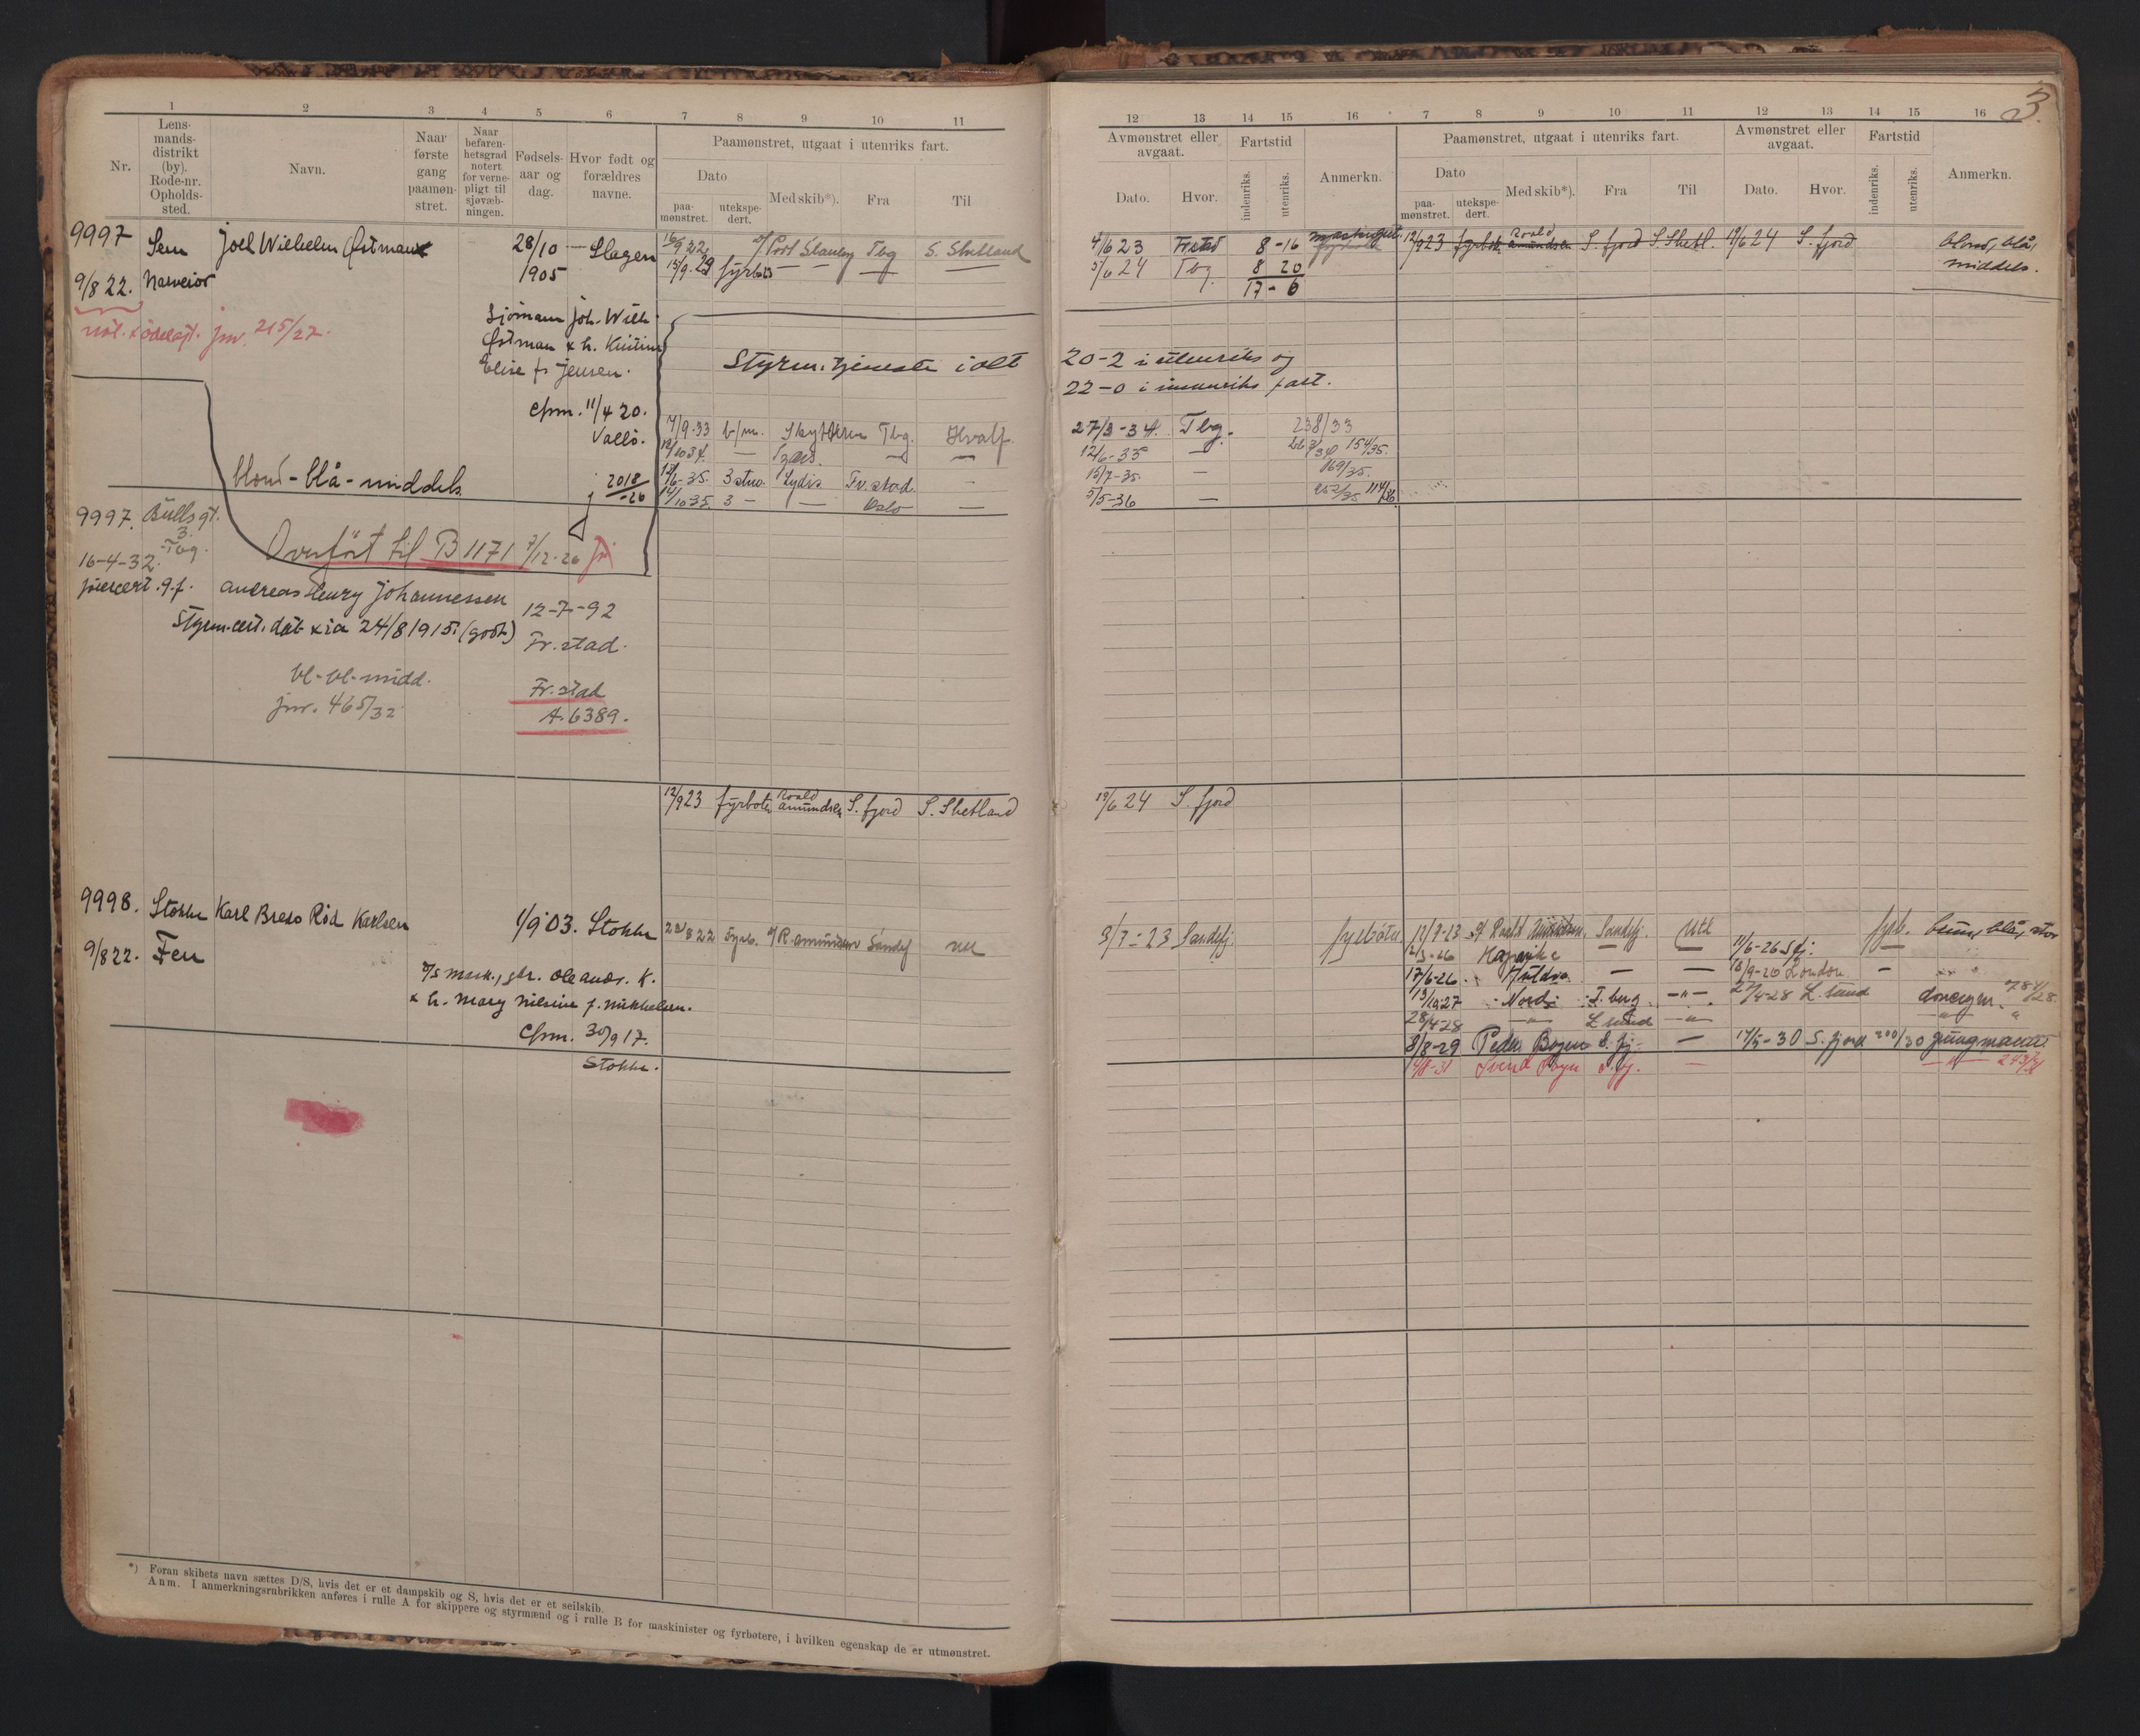 1 2 3 4 5 6 7 8 9 10 11
Nr.
Lens-
mands-
distrikt
(by).
Rode-nr.
Opholds-
sted.
Navn.
Naar
første
gang
paamøn-
stret.
Naar
befaren-
hetsgrad
notert
for verne-
pligt til
sjøvæb-
ningen.
Fødsels-
aar og
dag.
Hvor født og
forældres
navne.
Paamønstret, utgaat i utenriks fart.
Dato
paa-
mønstret.
utekspe-
dert.
Med skib*).
Fra
Til
9997 Sem Joel Wilhelm Østman 28/10 — Slagen
9/8 22. 1905
16/9 22 Port Stanley Tbg S. Shetland
13/9 29 fyrb — — —
215/27.
Sjömann Joh. Wilh.
Østman & h. Kristine
Elise f. Jensen.
Cfrm. 11/4 20.
Vallö.
Styrm. tjeneste i alt
blond - blå - middels
2018/-26
7/9-33 Tbg. Hvalf.
18/10 34. — — —
12/6-35. Lydis Fr.stad. —
14/10 35. 3 — — Oslo —
9997. Bulls gt.
3.
Tbg.
16-4-32.
Overfört til B 1171 7/12-26
Andreas Henry Johannessen
12-7-92
Fr.stad.
Styrm.cert. dat. 24/8 1915. (godt.)
bl-bl-midd.
jnr. 465/32
Fr.stad
A. 6389.
12/9 23 fyrböter Roald Amundsen S. fjord S. Shetland
9998. Stokke Karl Bredo Rød Karlsen 1/9 03. Stokke
23/8 22 fyrb. R. Amundsen Sandef
9/8 22. Fen
gbr. Ole Andr. K.
& h. Mary Nilsine f. Mikkelsen.
Cfrm. 30/9 17.
Stokke.
*) Foran skibets navn sættes D/S, hvis det er et dampskib og S, hvis det er et seilskib.
Anm. I anmerkningsrubrikken anføres i rulle A for skippere og styrmænd og i rulle B for maskinister og fyrbøtere, i hvilken egenskap de er utmønstret.
3.
12 13 14 15 16 7 8 9 10 11 12 13 14 15 16
Avmønstret eller
avgaat.
Dato.
Hvor.
Fartstid
indenriks.
utenriks.
Anmerkn.
Paamønstret, utgaat i utenriks fart.
Dato
paa-
mønstret.
utekspe-
dert.
Med skib*).
Fra
Til
Avmønstret eller
avgaat.
Dato.
Hvor.
Fartstid
indenriks.
utenriks.
Anmerkn.
4/6 23 Frstad 8-16
12/9 23 fyrböt. Roald Amundsen S. fjord S. Shetl. 19/6 24 S. fjord blond, blå,
middels.
5/6 24 Tbg. 8 20
17-6
20-2 i utenriks og
22-0 i innenriks fart.
27/3-34. Tbg. 238/33
12/6-35 — 154/35.
15/7-35. — 169/35.
5/5-36 — 252/35 114/36
19/6 24 S. fjord
3/7-23 Sandefj. fyrböter
Roald Amundsen. Sandefj. fyrb. brun, blå, stor
11/6-26 Sfj.
17/6-26 Huldra — — 18/9-26 London. —
13/10 27 Nord T.berg. —„—. 27/4-28 L. sund donkeym. 784/28
28/4-28 —„— L. sund —„—
8/8-29 Peder Bogen S. fj. — 17/5-30 S. fjord 200/30 jungmann
Svend Foyn S. fj. —